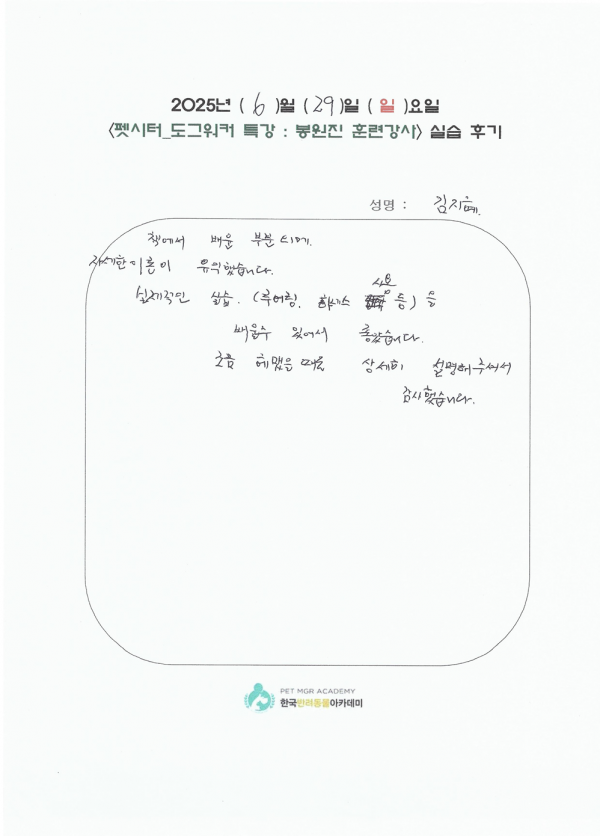 2025년 ( 6 )월 ( 29 )일 ( 일 )요일
<펫시터_도그워커 특강 : 봉원진 훈련강사> 실습 후기
성명 : 김지혜.
책에서 배운 부분 외에.
자세한 이론이 유익했습니다.
사용
실제적인 실습. (루어링, 하네스 등) 을
배울수 있어서 좋았습니다.
조금 헤맸을 때도 상세히 설명해주셔서
감사했습니다.
PET MGR ACADEMY
한국반려동물아카데미